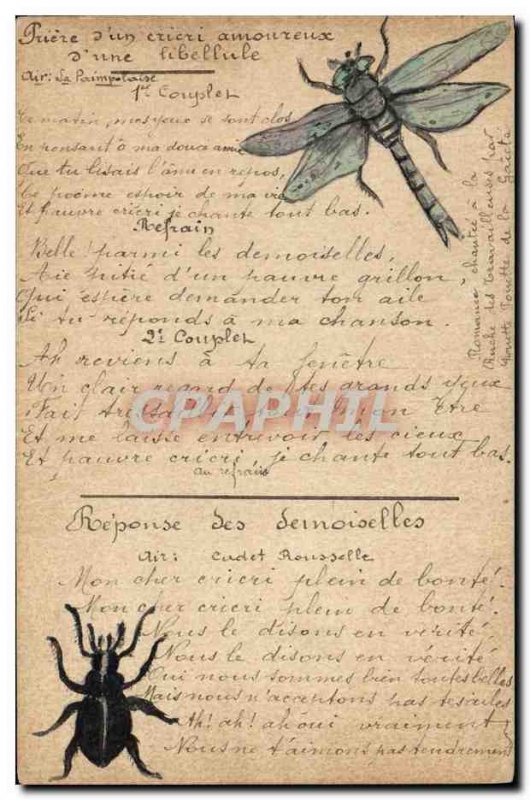 Prière d'un cricri amoureux
d'une libellule
Air: La Paimpolaise
1er Couplet
Ce matin, mes yeux se sont clos
En pensant à ma douce amie
Que tu lisais l'âme en repos,
Le poème espoir de ma vie
Et pauvre cricri je chante tout bas.
Refrain
Belle! parmi les demoiselles,
Aie pitié d'un pauvre grillon,
Qui espère demander ton aile
Si tu réponds à ma chanson.
2e Couplet
Ah reviens à ta fenêtre
Un clair regard de tes grands yeux
Fait tressaillir mon être
Et me laisse entrevoir les cieux
Et pauvre cricri, je chante tout bas.
au refrain
Romance chantée à la
Ruche des Travailleuses par
Yonette de la Gaieté
CPAPHIL
Réponse des demoiselles
Air: Cadet Rousselle
Mon cher cricri plein de bonté.
Mon cher cricri plein de bonté.
Nous le disons en vérité
Nous le disons en vérité
Qui nous sommes bien toutes belles
Mais nous n'acceptons pas tes ailes
Ah! ah! ah oui vraiment
Nous ne t'aimons pas tendrement